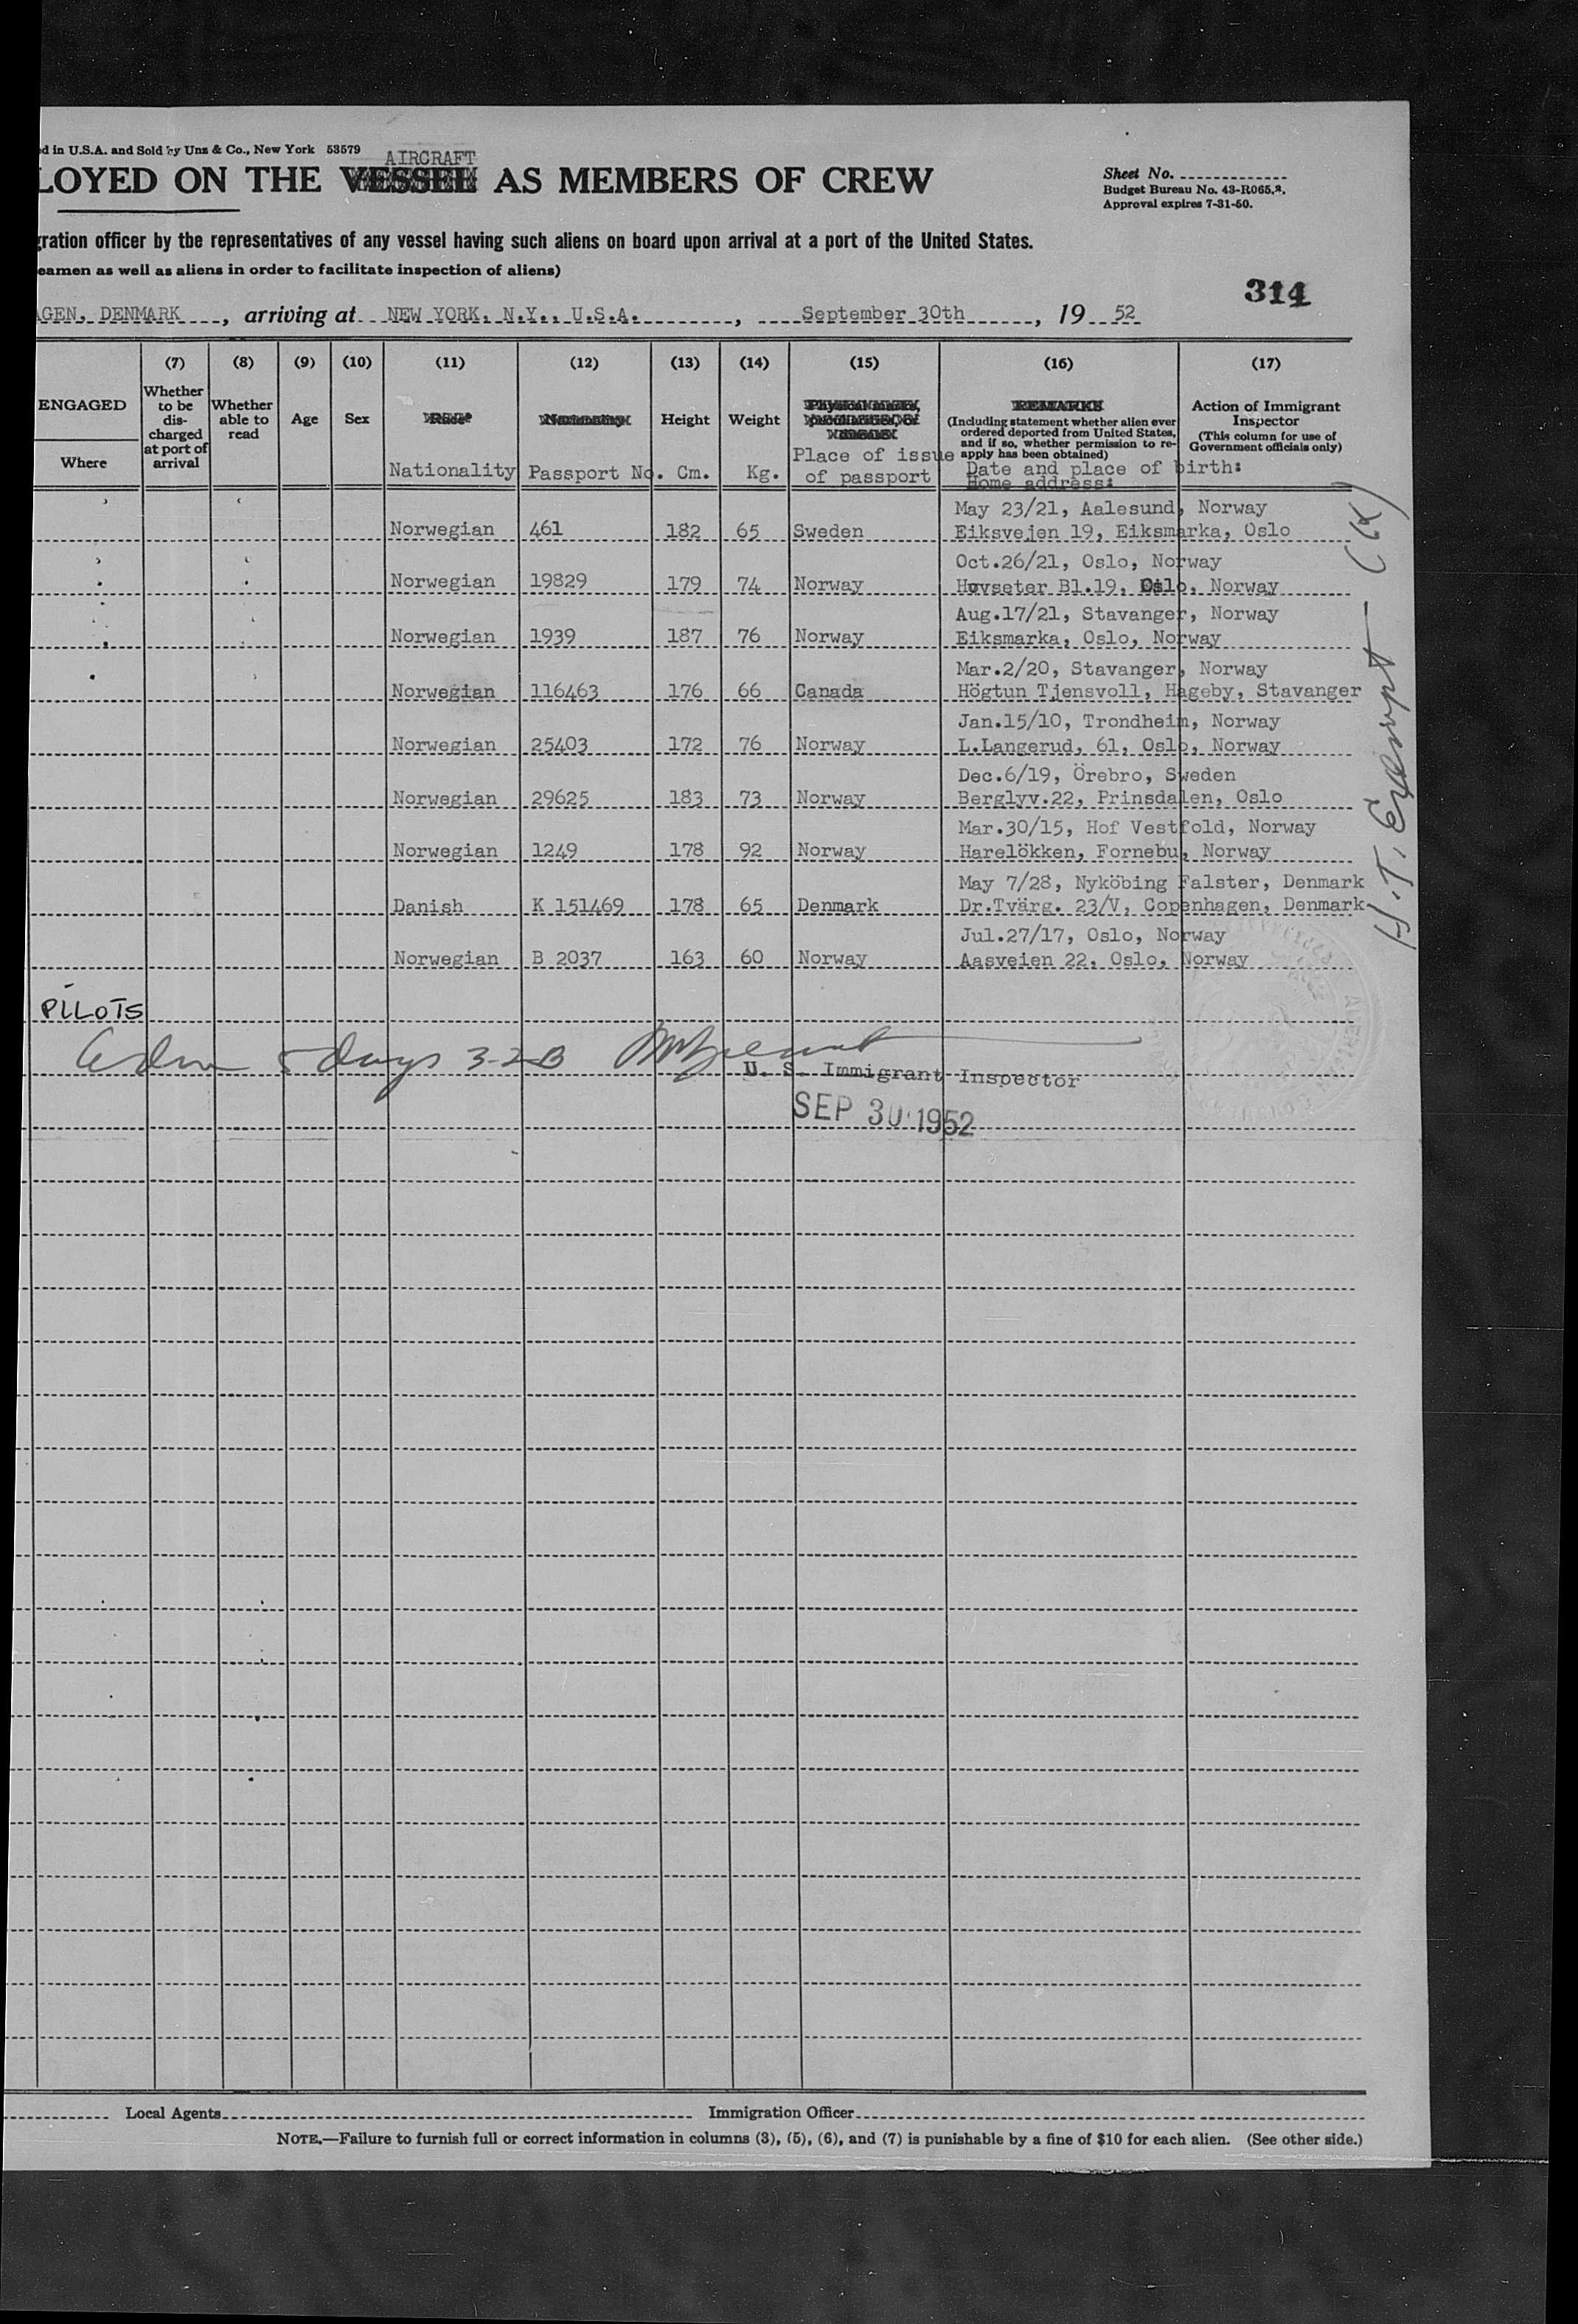 d in U.S.A. and Sold by Unz & Co., New York 53579
AIRCRAFT
LOYED ON THE VESSEL AS MEMBERS OF CREW
Sheet No.
Budget Bureau No. 43-R065.2.
Approval expires 7-31-50.
gration officer by the representatives of any vessel having such aliens on board upon arrival at a port of the United States.
eamen as well as aliens in order to facilitate inspection of aliens)
314
AGEN, DENMARK, arriving at NEW YORK, N.Y., U.S.A., September 30th, 19 52
(7) (8) (9) (10) (11) (12) (13) (14) (15) (16) (17)
ENGAGED
Where
Whether to be dis-charged at port of arrival
Whether able to read
Age
Sex
Race
Nationality
Nationality
Passport No.
Height
Cm.
Weight
Kg.
Place of issue
of passport
REMARKS
(Including statement whether alien ever
ordered deported from United States,
and if so, whether permission to re-
apply has been obtained)
Date and place of birth:
Home address:
Action of Immigrant
Inspector
(This column for use of
Government officials only)
May 23/21, Aalesund, Norway
Norwegian 461 182 65 Sweden Eiksveien 19, Eiksmarka, Oslo
Oct.26/21, Oslo, Norway
Norwegian 19829 179 74 Norway Hovseter Bl.19, Oslo, Norway
Aug.17/21, Stavanger, Norway
Norwegian 1939 187 76 Norway Eiksmarka, Oslo, Norway
Mar.2/20, Stavanger, Norway
Norwegian 116463 176 66 Canada Högtun Tjensvoll, Hageby, Stavanger
Jan.15/10, Trondheim, Norway
Norwegian 25403 172 76 Norway L.Langerud, 61, Oslo, Norway
Dec.6/19, Örebro, Sweden
Norwegian 29625 183 73 Norway Berglyv.22, Prinsdalen, Oslo
Mar.30/15, Hof Vestfold, Norway
Norwegian 1249 178 92 Norway Harelökken, Fornebu, Norway
May 7/28, Nyköbing Falster, Denmark
Danish K 151469 178 65 Denmark Dr.Tvärg. 23/V, Copenhagen, Denmark
Jul.27/17, Oslo, Norway
Norwegian B 2037 163 60 Norway Aasveien 22, Oslo, Norway
H.T. Exempt
PILOTS
5 days 3-2B
U. S. Immigrant Inspector
SEP 30 1952
Local Agents Immigration Officer
NOTE.—Failure to furnish full or correct information in columns (3), (5), (6), and (7) is punishable by a fine of $10 for each alien. (See other side.)